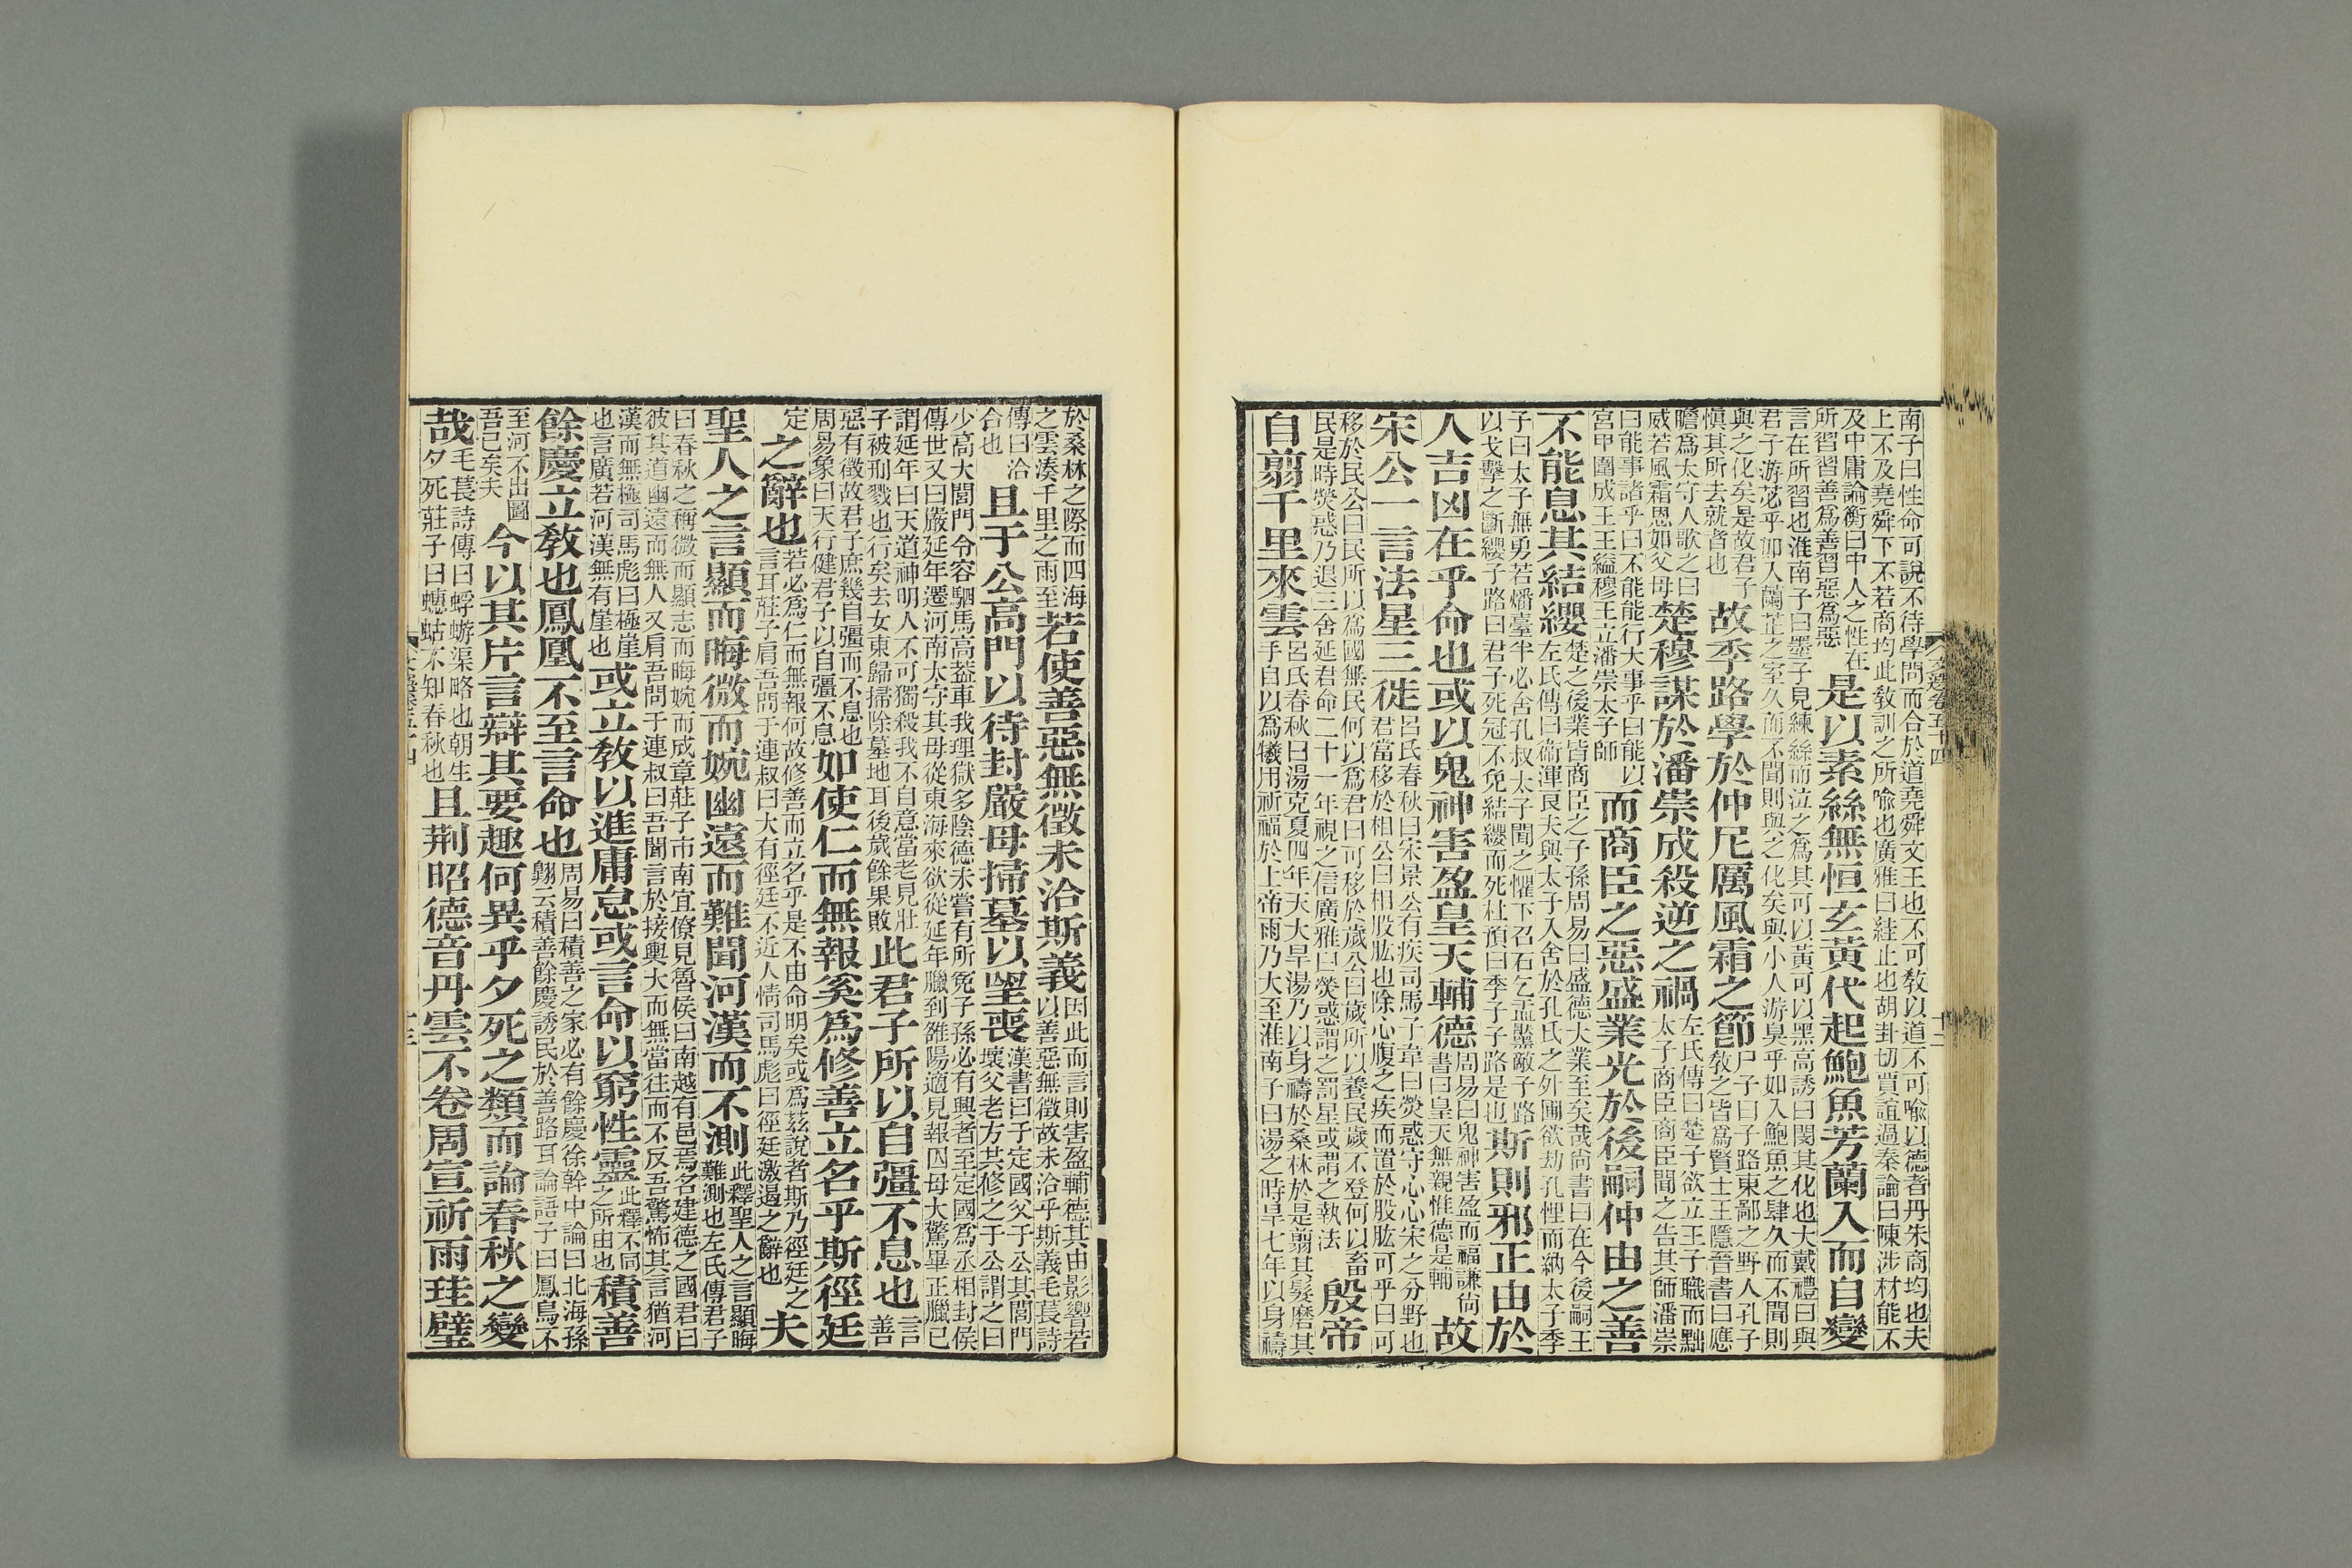 南子曰性命可說不待學問而合於道堯舜文王也不可敎以道不可喩以德者丹朱商均也夫
上不及堯舜下不若商均此敎訓之所喩也廣雅曰絓止也胡卦切賈誼過秦論曰陳涉材能不
及中庸論衡曰中人之性在所習習善爲善習惡爲惡是以素絲無恒玄黃代起鮑魚芳蘭入而自變
言在所習也淮南子曰墨子見練絲而泣之爲其可以黃可以黑高誘曰閔其化也大戴禮曰與
君子游苾乎如入蘭芷之室久而不聞則與之化矣與小人游臭乎如入鮑魚之肆久而不聞則
與之化矣是故君子愼其所去就者也故季路學於仲尼厲風霜之節尸子曰子路東鄙之野人孔子敎之皆爲賢士王隱晉書曰應
瞻爲太守人歌之曰威若風霜恩如父母楚穆謀於潘崇成殺逆之禍左氏傳曰楚子欲立王子職而黜太子商臣商臣聞之告其師潘崇
曰能事諸乎曰不能能行大事乎曰能以宮甲圍成王王縊穆王立潘崇太子師而商臣之惡盛業光於後嗣仲由之善
不能息其結纓楚之後業皆商臣之子孫周易曰盛德大業至矣哉尙書曰在今後嗣王左氏傳曰衞渾良夫與太子入舍於孔氏之外圃欲劫孔悝而納太子季
子曰太子無勇若燔臺半必舍孔叔太子聞之懼下召石乞盂黶敵子路以戈擊之斷纓子路曰君子死冠不免結纓而死杜預曰季子子路是也斯則邪正由於
人吉凶在乎命也或以鬼神害盈皇天輔德周易曰鬼神害盈而福謙尙書曰皇天無親惟德是輔故
宋公一言法星三徙呂氏春秋曰宋景公有疾司馬子韋曰熒惑守心心宋之分野也君當移於相公曰相股肱也除心腹之疾而置於股肱可乎曰可
移於民公曰民所以爲國無民何以爲君曰可移於歲公曰歲所以養民歲不登何以畜民是時熒惑乃退三舍延君命二十一年視之信廣雅曰熒惑謂之罰星或謂之執法殷帝
自翦千里來雲呂氏春秋曰湯克夏四年天大旱湯乃以身禱於桑林於是翦其髮磨其手自以爲犧用祈福於上帝雨乃大至淮南子曰湯之時旱七年以身禱
於桑林之際而四海之雲湊千里之雨至若使善惡無徵未洽斯義因此而言則害盈輔德其由影響若以善惡無徵故未洽乎斯義毛萇詩
傳曰洽合也且于公高門以待封嚴母掃墓以望喪漢書曰于定國父于公其閭門壞父老方共修之于公謂之曰
少高大閭門令容駟馬高蓋車我理獄多陰德未嘗有所冤子孫必有興者至定國爲丞相封侯
傳世又曰嚴延年遷河南太守其母從東海來欲從延年臘到雒陽適見報囚母大驚畢正臘已
謂延年曰天道神明人不可獨殺我不自意當老見壯子被刑戮也行矣去女東歸掃除墓地耳後歲餘果敗此君子所以自彊不息也言善
惡有徵故君子庶幾自彊而不息也周易象曰天行健君子以自彊不息如使仁而無報奚爲修善立名乎斯徑廷
之辭也若必爲仁而無報何故修善而立名乎是不由命明矣或爲茲說者斯乃徑廷之言耳莊子肩吾問于連叔曰大有徑廷不近人情司馬彪曰徑廷激過之辭也夫
聖人之言顯而晦微而婉幽遠而難聞河漢而不測此釋聖人之言顯晦難測也左氏傳君子
曰春秋之稱微而顯志而晦婉而成章莊子市南宜僚見魯侯曰南越有邑焉名建德之國君曰
彼其道幽遠而無人又肩吾問于連叔曰吾聞言於接輿大而無當往而不反吾驚怖其言猶河
漢而無極司馬彪曰極崖也言廣若河漢無有崖也或立敎以進庸怠或言命以窮性靈此釋不同之所由也積善
餘慶立敎也鳳凰不至言命也周易曰積善之家必有餘慶徐幹中論曰北海孫翺云積善餘慶誘民於善路耳論語子曰鳳鳥不
至河不出圖吾已矣夫今以其片言辯其要趣何異乎夕死之類而論春秋之變
哉毛萇詩傳曰蜉蝣渠略也朝生夕死莊子曰蟪蛄不知春秋也且荆昭德音丹雲不卷周宣祈雨珪璧